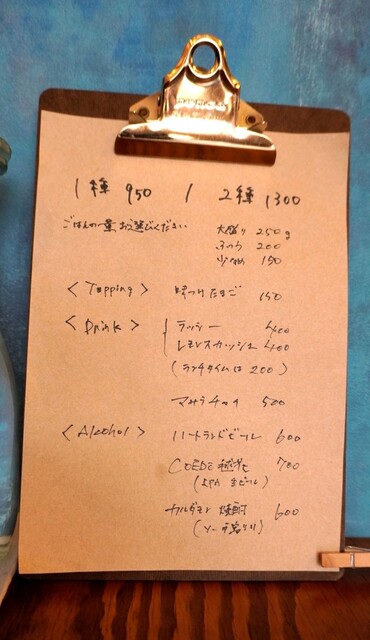 1種 950 / 2種 1300
ごはんの量お選びください
大盛り 250g
ふつう 200
少なめ 150
<Topping> 味つけたまご 150
<Drink> ラッシー 400
レモンスカッシュ 400
(ランチタイムは 200)
マサラチャイ 500
<Alcohol> ハートランドビール 600
COEDO 毬花 700
生ビール)
カルダモン焼酎 600
(ソーダ割り)